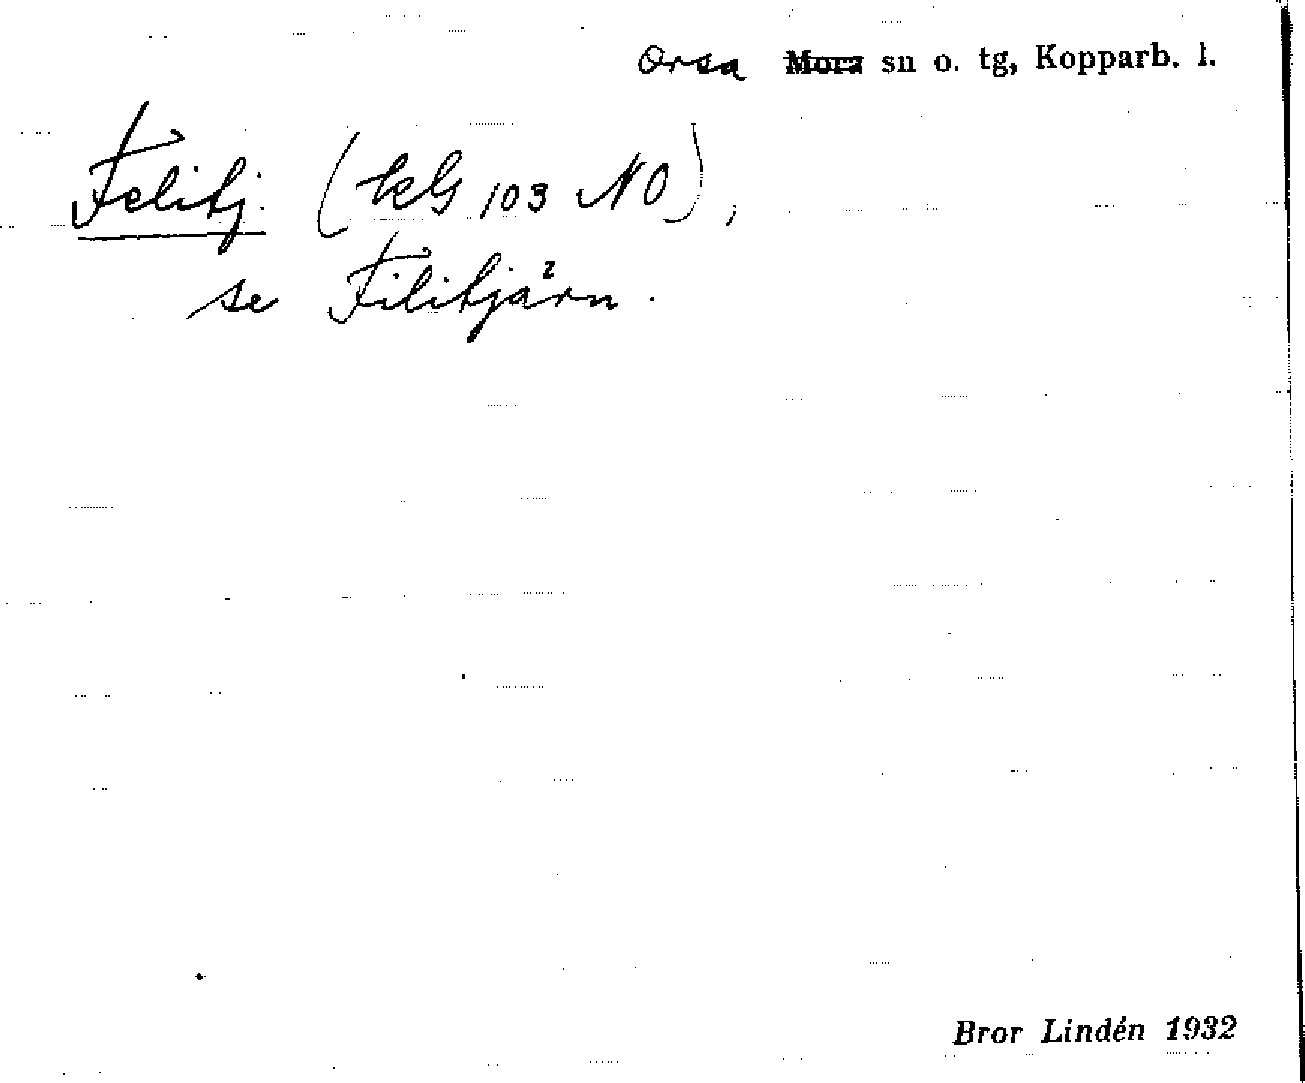 Orsa Mora sn o. tg, Kopparb. l.
Felitj. (tkG 103 NO),
se Filitjärn.
Bror Lindén 1932